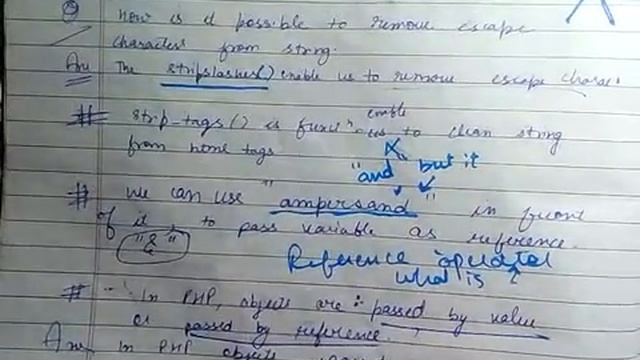 How is it possible to remove escape
characters from string.
Ans The stripslashes() enable us to remove escape charac
# strip-tags() is funcn enable us to clean string
from html tags
"and" but it
# we can use "ampersand" in front
of it, to pass variable as reference.
"&"
Reference operator
what is ?
# In PHP, objects are passed by value
or passed by reference.
Ans In PHP objects